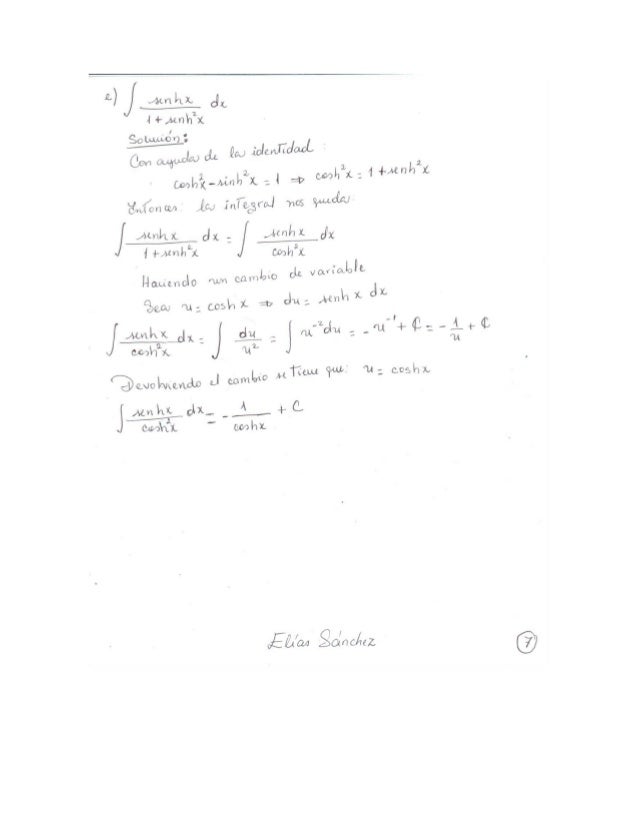 e) ∫ senhx / 1 + senh²x dx
Solución:
Con ayuda de la identidad:
cosh²x - sinh²x = 1 ⇒ cosh²x = 1 + senh²x
Entonces: la integral nos queda:
∫ senhx / 1 + senh²x dx = ∫ senhx / cosh²x dx
Haciendo un cambio de variable
Sea u = coshx ⇒ du = senhx dx
∫ senhx / cosh²x dx = ∫ du / u² = ∫ u⁻² du = - u⁻¹ + C = - 1 / u + C
Devolviendo el cambio se tiene que: u = coshx
∫ senhx / cosh²x dx = - 1 / coshx + C
Elías Sánchez
7